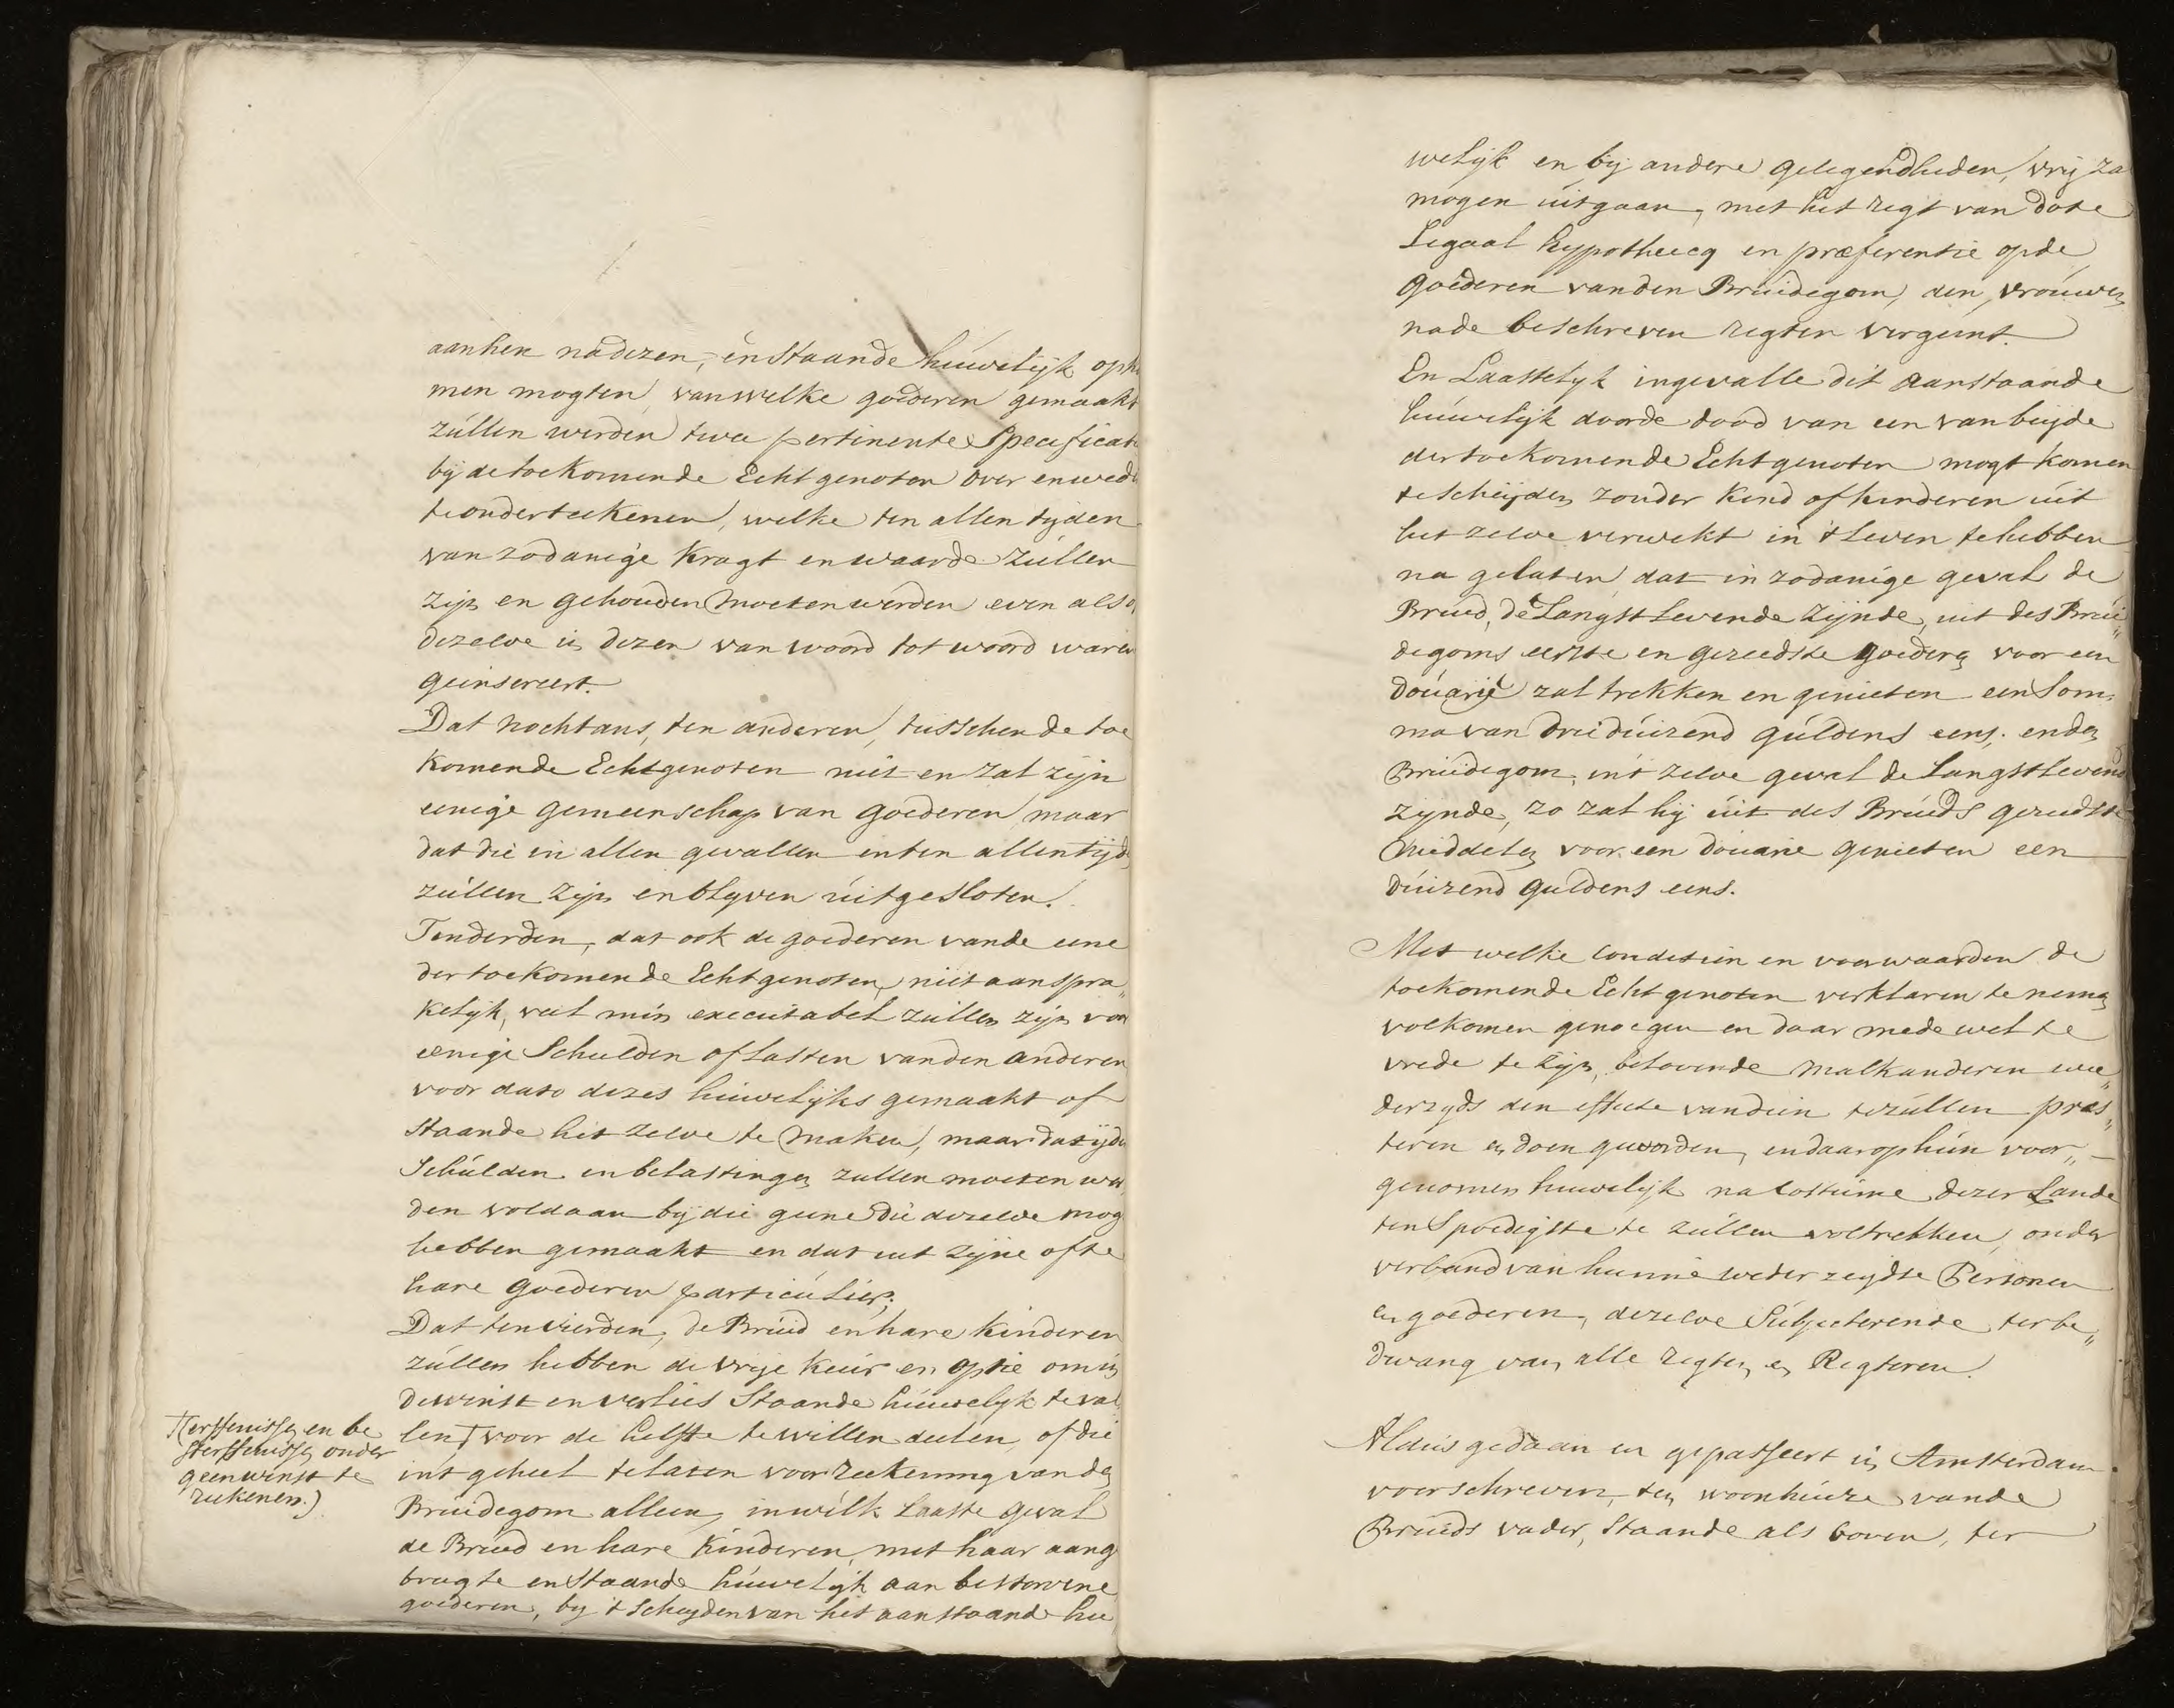 aan hen nadezen, en staande huwelijk opko
men mogten, van welke goederen gemaakt
zullen werden twee pertinente Specificati
bij de toekomende Echtgenoten over en wede
te onderteekenen, welke ten allen tijden
van zodanige kragt en waarde zullen
zijn en gehouden moeten werden even als o
dezelve in dezen van woord tot woord waren
geinsereert.
Dat nochtans, ten anderen, tusschen de toe
komende Echtgenoten niet en zal zijn
eenige gemeenschap van goederen, maar
dat die in allen gevallen en ten allen tijd
zullen zijn en blyven uitgesloten.
Tenderden, dat ook de goederen vande eene
der toekomende Echtgenoten, niet aanspra„
kelijk, veel min executabel zullen zijn voor
eenige Schulden of lasten vanden anderen
voor dato dezes huwelijks gemaakt of
Staande het zelve te maken, maar dat ijde
Schulden en belastingen zullen moeten wer
den voldaan bij die geene die dezelve mog
hebben gemaakt en dat uit zijne ofte
hare goederen particulier;
Dat ten vierden, de Bruid en hare kinderen
zullen hebben de vrije keur en optie om in
de winst en verlies Staande huwelyk te val
len † voor de helfte te willen deelen, of die
int geheel te laten voor reekening van den
Bruidegom alleen, in welk laaste geval
de Bruid en hare kinderen, met haar aange
bragte en Staande huwelijk aan bestorvene
goederen, by 't scheyden van het aanstaande hu
†(erffenissen en be
sterffenissen onder
geen winst te
reekenen.)
welijk en bij andere gelegendheden, vrij za
mogen uitgaan, met het regt van dote
Legaal hypotheecq en præferentie op de
goederen van den Bruidegom, den vrouwen
na de beschreven regten vergunt.
En Laastelyk ingevalle dit aanstaande
huwelijk door de dood van een van beijde
der toekomende Echtgenoten mogt komen
te scheijden zonder kind of kinderen uit
het zelve verwekt in 't leven te hebben
na gelaten, dat in zodanige geval de
Bruid, de Langst Levende zijnde, uit des Brui„
degoms eerste en gereedste goederen voor een
douarie zal trekken en genieten een Som„
ma van drie duizend guldens eens; en den
Bruidegom, in't zelve geval de Langstlevend
zynde, zo zal hij uit des Bruids gereedste
middelen voor een douarie genieten een
duizend guldens eens.
Met welke conditien en voorwaarden de
toekomende Echtgenoten verklaren te nemen
volkomen genoegen en daar mede wel te
vrede te zijn, belovende malkanderen wee„
derzyds den effecte van dien te zullen præs„
teren en doen geworden, en daar op hun voor„
genomen huwelijk na costume dezer Lande
ten Spoedigste te zullen voltrekken, onder
verband van hunne weder zeydse Personen
en goederen, dezelve Subjecterende ter be„
dwang van alle regten en Regteren.
Aldus gedaan en gepasseert in Amsterdam
voorschreven, ten woonhuize vande
Bruids vader, Staande als boven, ter